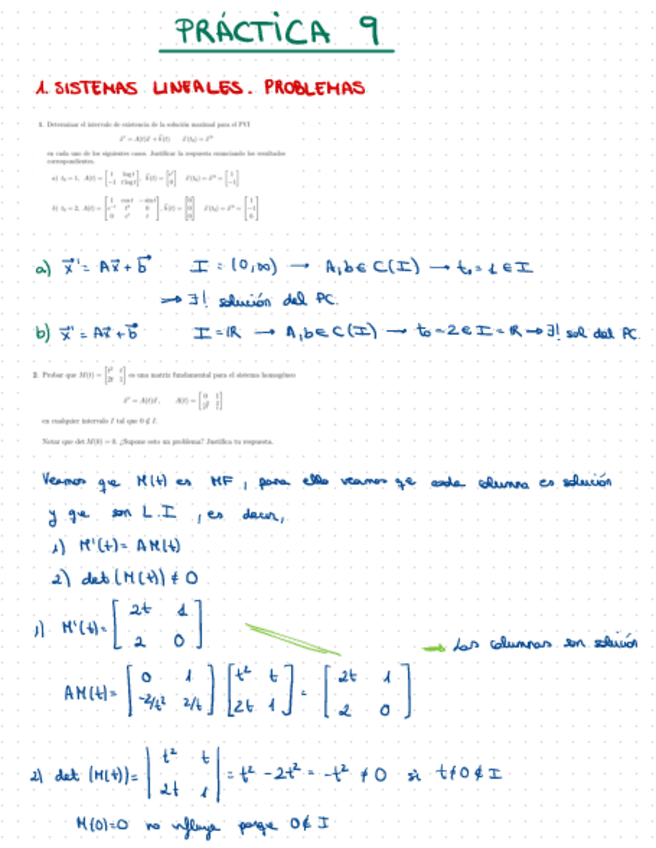 PRÁCTICA 9
1. SISTEMAS LINEALES. PROBLEMAS
1. Determinar el intervalo de existencia de la solución maximal para el PVI
x⃗' = A(t)x⃗ + b⃗(t)   x⃗(t₀) = x⃗⁰
en cada uno de los siguientes casos. Justificar la respuesta enunciando los resultados
correspondientes.
a) t₀ = 1, A(t) = [1 log t; -1 t log t], b⃗(t) = [eᵗ; 0]   x⃗(t₀) = x⃗⁰ = [1; -1]
b) t₀ = 2, A(t) =   , b⃗(t) = [0; 0; 0]   x⃗(t₀) = x⃗⁰ = [1; -1; 0]
a) x⃗' = Ax⃗ + b⃗   I = (0,∞) → A,b ∈ C(I) → t₀ = 1 ∈ I
→ ∃! solución del PC.
b) x⃗' = Ax⃗ + b⃗   I = ℝ → A,b ∈ C(I) → t₀ = 2 ∈ I = ℝ → ∃! sol del PC.
2. Probar que M(t) = [t² t; 2t 1] es una matriz fundamental para el sistema homogéneo
x⃗' = A(t)x⃗,   A(t) =
en cualquier intervalo I tal que 0 ∉ I.
Notar que det M(0) = 0. ¿Supone esto un problema? Justifica tu respuesta.
Veamos qe M(t) es MF, para ello veamos qe cada columna es solución
y que son L.I, es decir,
1) M'(t) = AM(t)
2) det (M(t)) ≠ 0
1) M'(t) = [2t 1; 2 0]
→ Las columnas son solución
AM(t) = [0 1; -2/t² 2/t] [t² t; 2t 1] = [2t 1; 2 0]
2) det (M(t)) = |t² t; 2t 1| = t² - 2t² = -t² ≠ 0 si t≠0 ∉ I
M(0)=0 no influye porqe 0 ∉ I